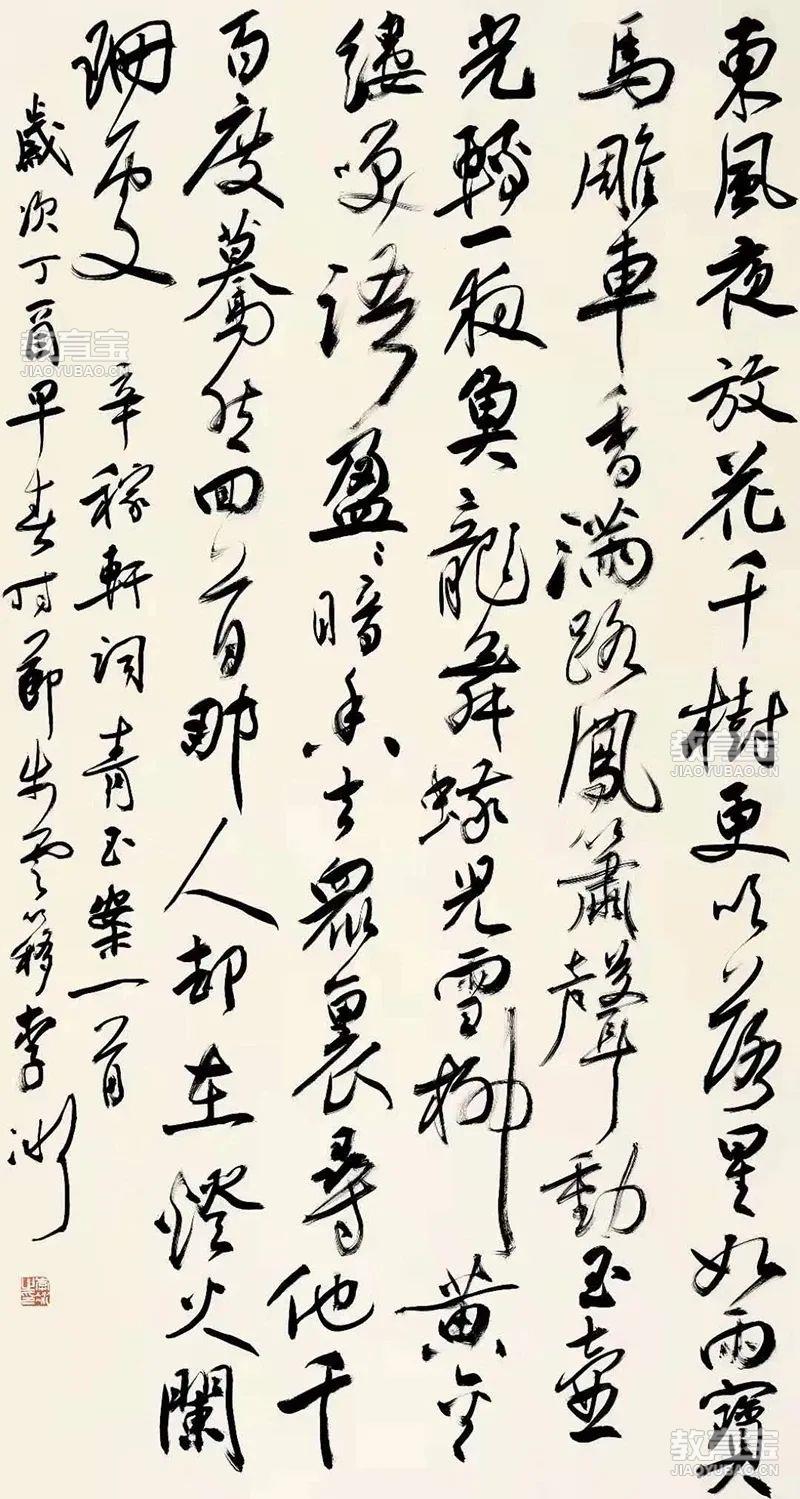 東風夜放花千樹更吹落星如雨寶
馬雕車香滿路鳳簫聲動玉壺
光轉一夜魚龍舞蛾兒雪柳黃金
縷咲語盈〻暗香去眾裏尋他千
百度驀然回首那人却在燈火闌
珊處
辛稼軒詞青玉案一首
歲次丁酉早春時節雲簃李冰
教育宝
JIAOYUBAO.CN
教育宝
JIAOYUBAO.CN
教育宝
JIAOYUBAO.CN